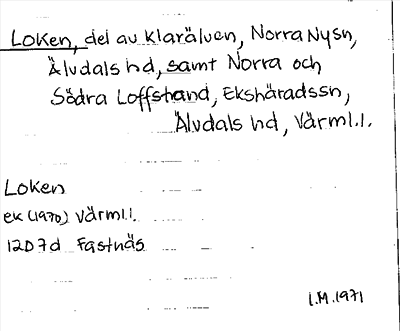 Loken, del av Klarälven, Norra Nysn,
Älvdals hd, samt Norra och
Södra Loffstrand, Ekshäradssn,
Älvdals hd, Värml.l.
Loken
ek (1970) Värml.l.
12D7d Fastnäs
I.M.1971